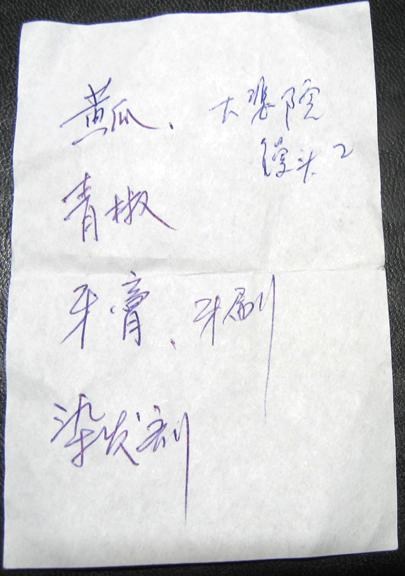 黄瓜、大悲院
馒头2
青椒
牙膏、牙刷
染发剂